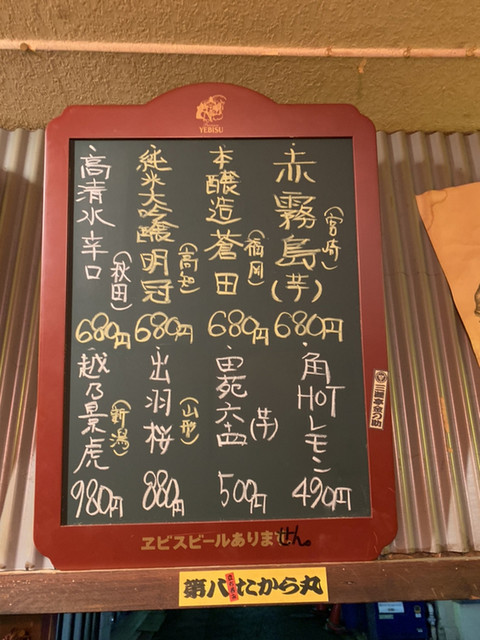 YEBISU
赤霧島(芋)
(宮崎)
680円
本醸造蒼田
(福岡)
680円
純米大吟醸明冠
(高知)
680円
高清水辛口
(秋田)
680円
角HOTレモン
490円
田苑
(芋)
500円
出羽桜
(山形)
880円
越乃景虎
(新潟)
980円
ヱビスビールありません。
第八たから丸